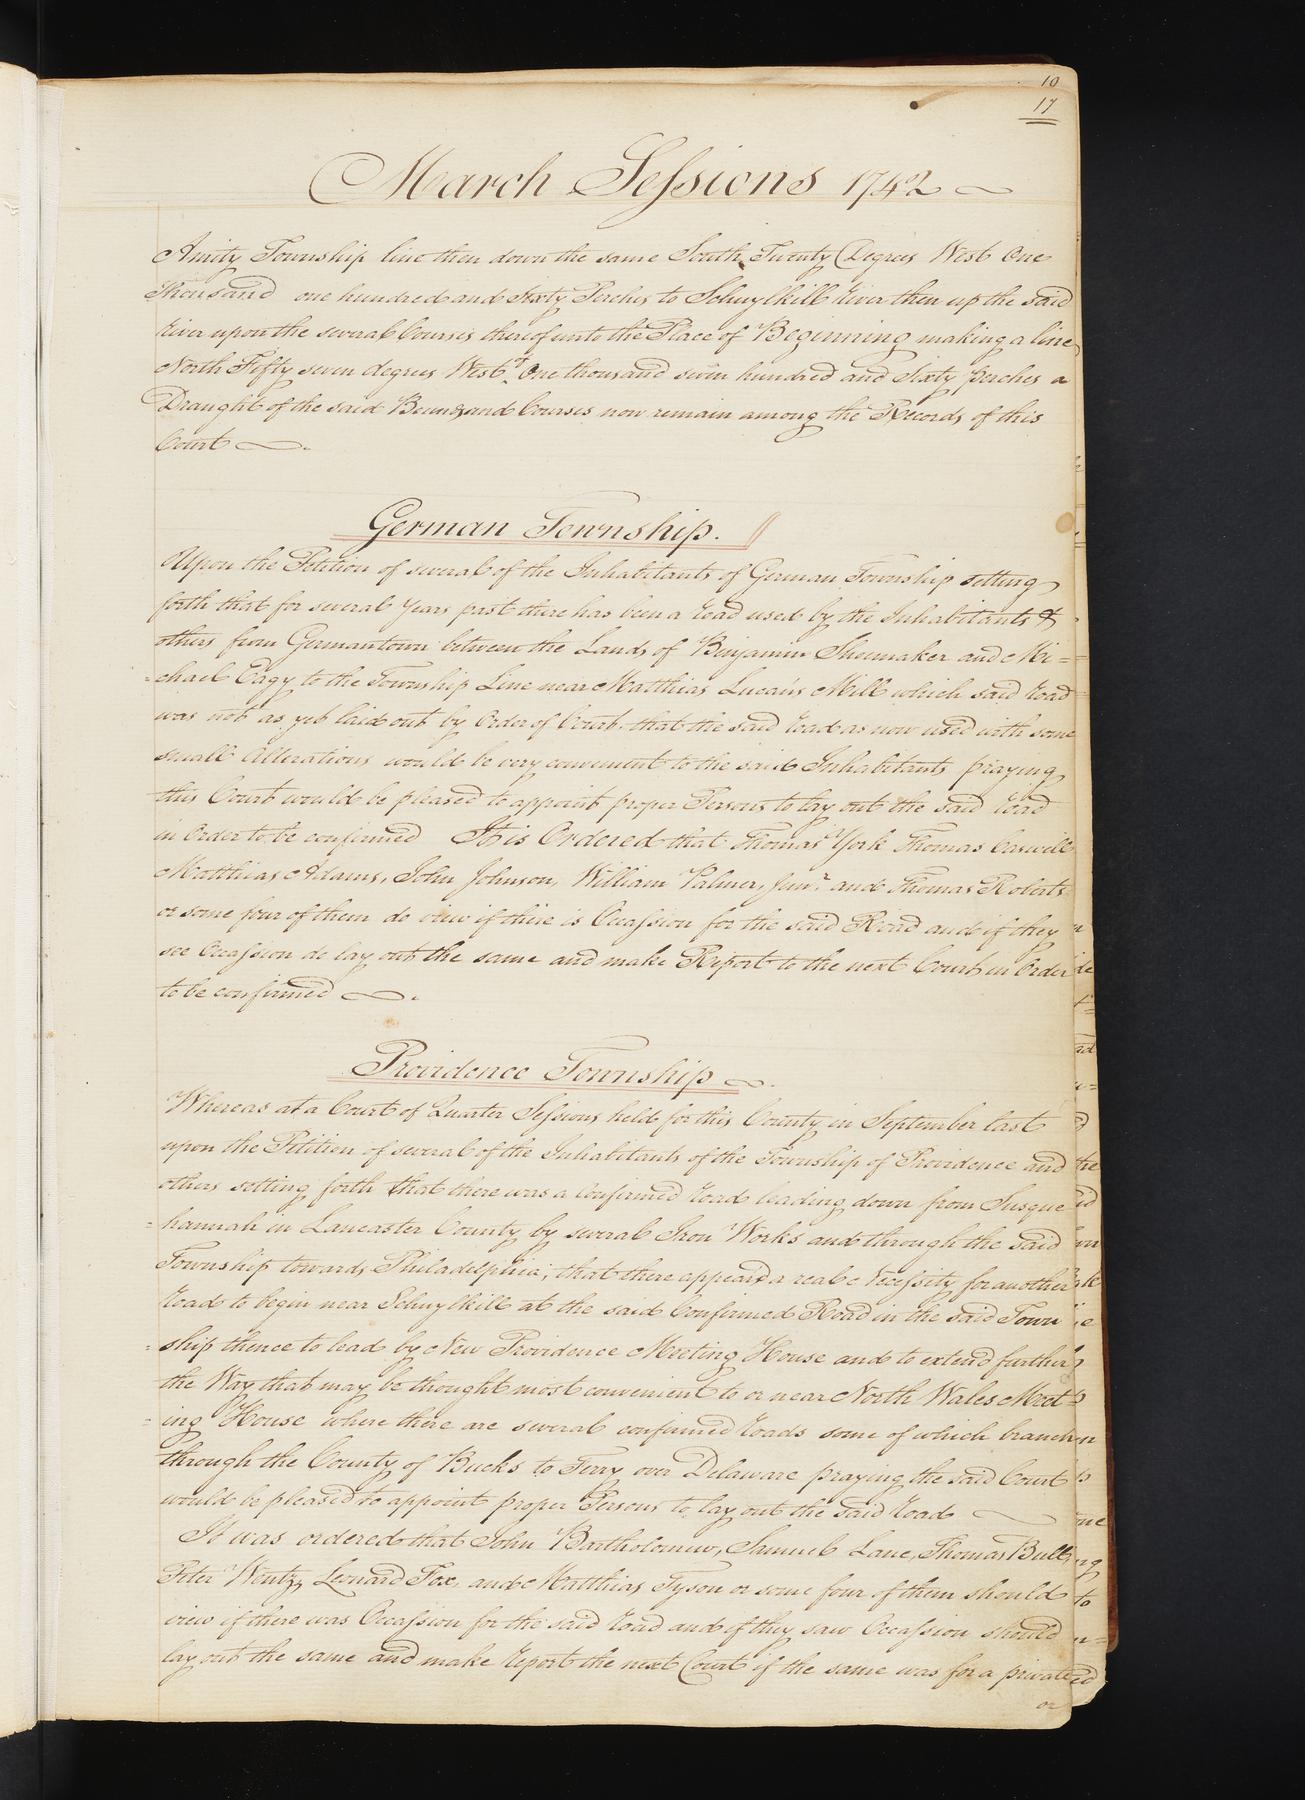 10
17
March Sessions 1742
Amity Township line then down the same South Twenty Degrees West One
Thousand one hundred and Sixty Perches to Schuylkill River then up the said
River upon the several Courses thereof unto the Place of Beginning making a line
North Fifty seven degrees West One thousand seven hundred and Sixty perches a
Draught of the said Bounds and Courses now remain among the Records of this
Court
German Township.
Upon the Petition of several of the Inhabitants of German Township setting
forth that for several Years past there has been a road used by the Inhabitants &
others from Germantown between the Lands of Benjamin Shoemaker and Mi=
=chael Eagy to the Township Line near Matthias Lucan's Mill which said road
was not as yet laid out by Order of Court, that the said road as now used with some
small Alterations would be very convenient to the said Inhabitants praying
this Court would be pleased to appoint proper Persons to lay out the said road
in Order to be confirmed It is Ordered that Thomas York Thomas Caswell
Matthias Adams, John Johnson, William Palmer, Junr. and Thomas Roberts
or some four of them do view if there is Occassion for the said Road and if they
see Occassion do lay out the same and make Report to the next Court in Order
to be confirmed
Providence Township
Whereas at a Court of Quarter Sessions held for this County in September last
upon the Petition of several of the Inhabitants of the Township of Providence and
others setting forth that there was a Confirmed road leading down from Susque
=hannah in Lancaster County by several Iron Works and through the said
Township towards Philadelphia; that there appeared a real Necessity for another
road to begin near Schuylkill at the said Confirmed Road in the said Town
=ship thence to lead by New Providence Meeting House and to extend further
the Way that may be thought most convenient to or near North Wales Meet=
=ing House where there are several confirmed roads some of which branch
through the County of Bucks to Ferry over Delaware praying the said Court
would be pleased to appoint proper Persons to lay out the said road
It was ordered that John Bartholomew, Samuel Lane, Thomas Bull,
Peter Wentz, Leonard Fox, and Matthias Tyson or some four of them should
view if there was Occassion for the said road and if they saw Occassion should
lay out the same and make report the next Court if the same was for a private
or